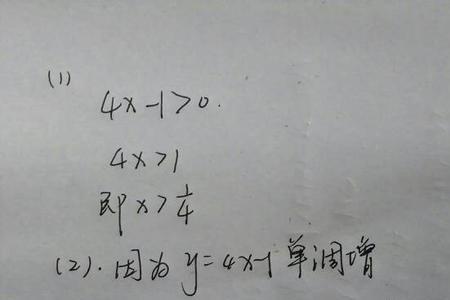 (1)
4x-1>0.
4x>1
即x>1/4
(2).因为y=4x-1单调增